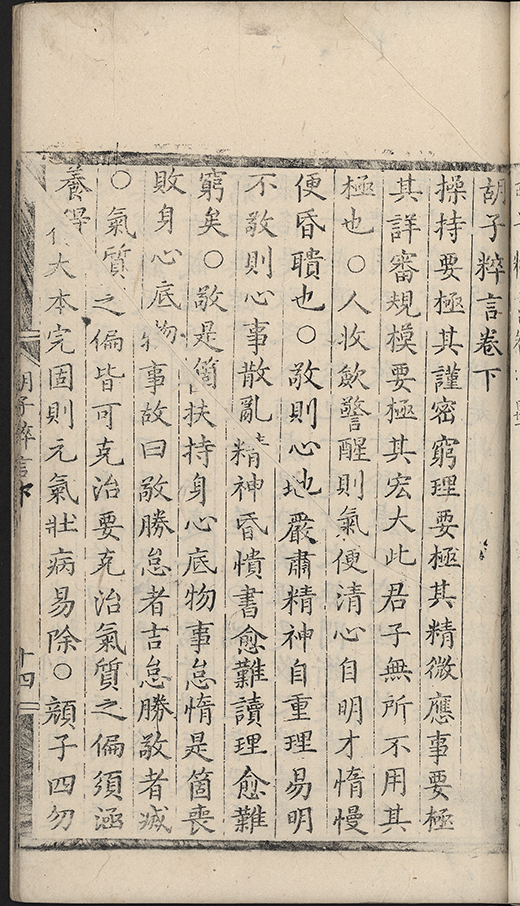 胡子粹言卷下
操持要極其謹密窮理要極其精微應事要極
其詳審規模要極其宏大此君子無所不用其
極也○人收斂警醒則氣便清心自明才惰慢
便昏瞶也○敬則心地嚴肅精神自重理易明
不敬則心事散亂精神昏憒書愈難讀理愈難
窮矣○敬是箇扶持身心底物事怠惰是箇喪
敗身心底物事故曰敬勝怠者吉怠勝敬者滅
○氣質之偏皆可克治要克治氣質之偏須涵
養得大本完固則元氣壯病易除○顏子四勿
胡子粹言下
十四